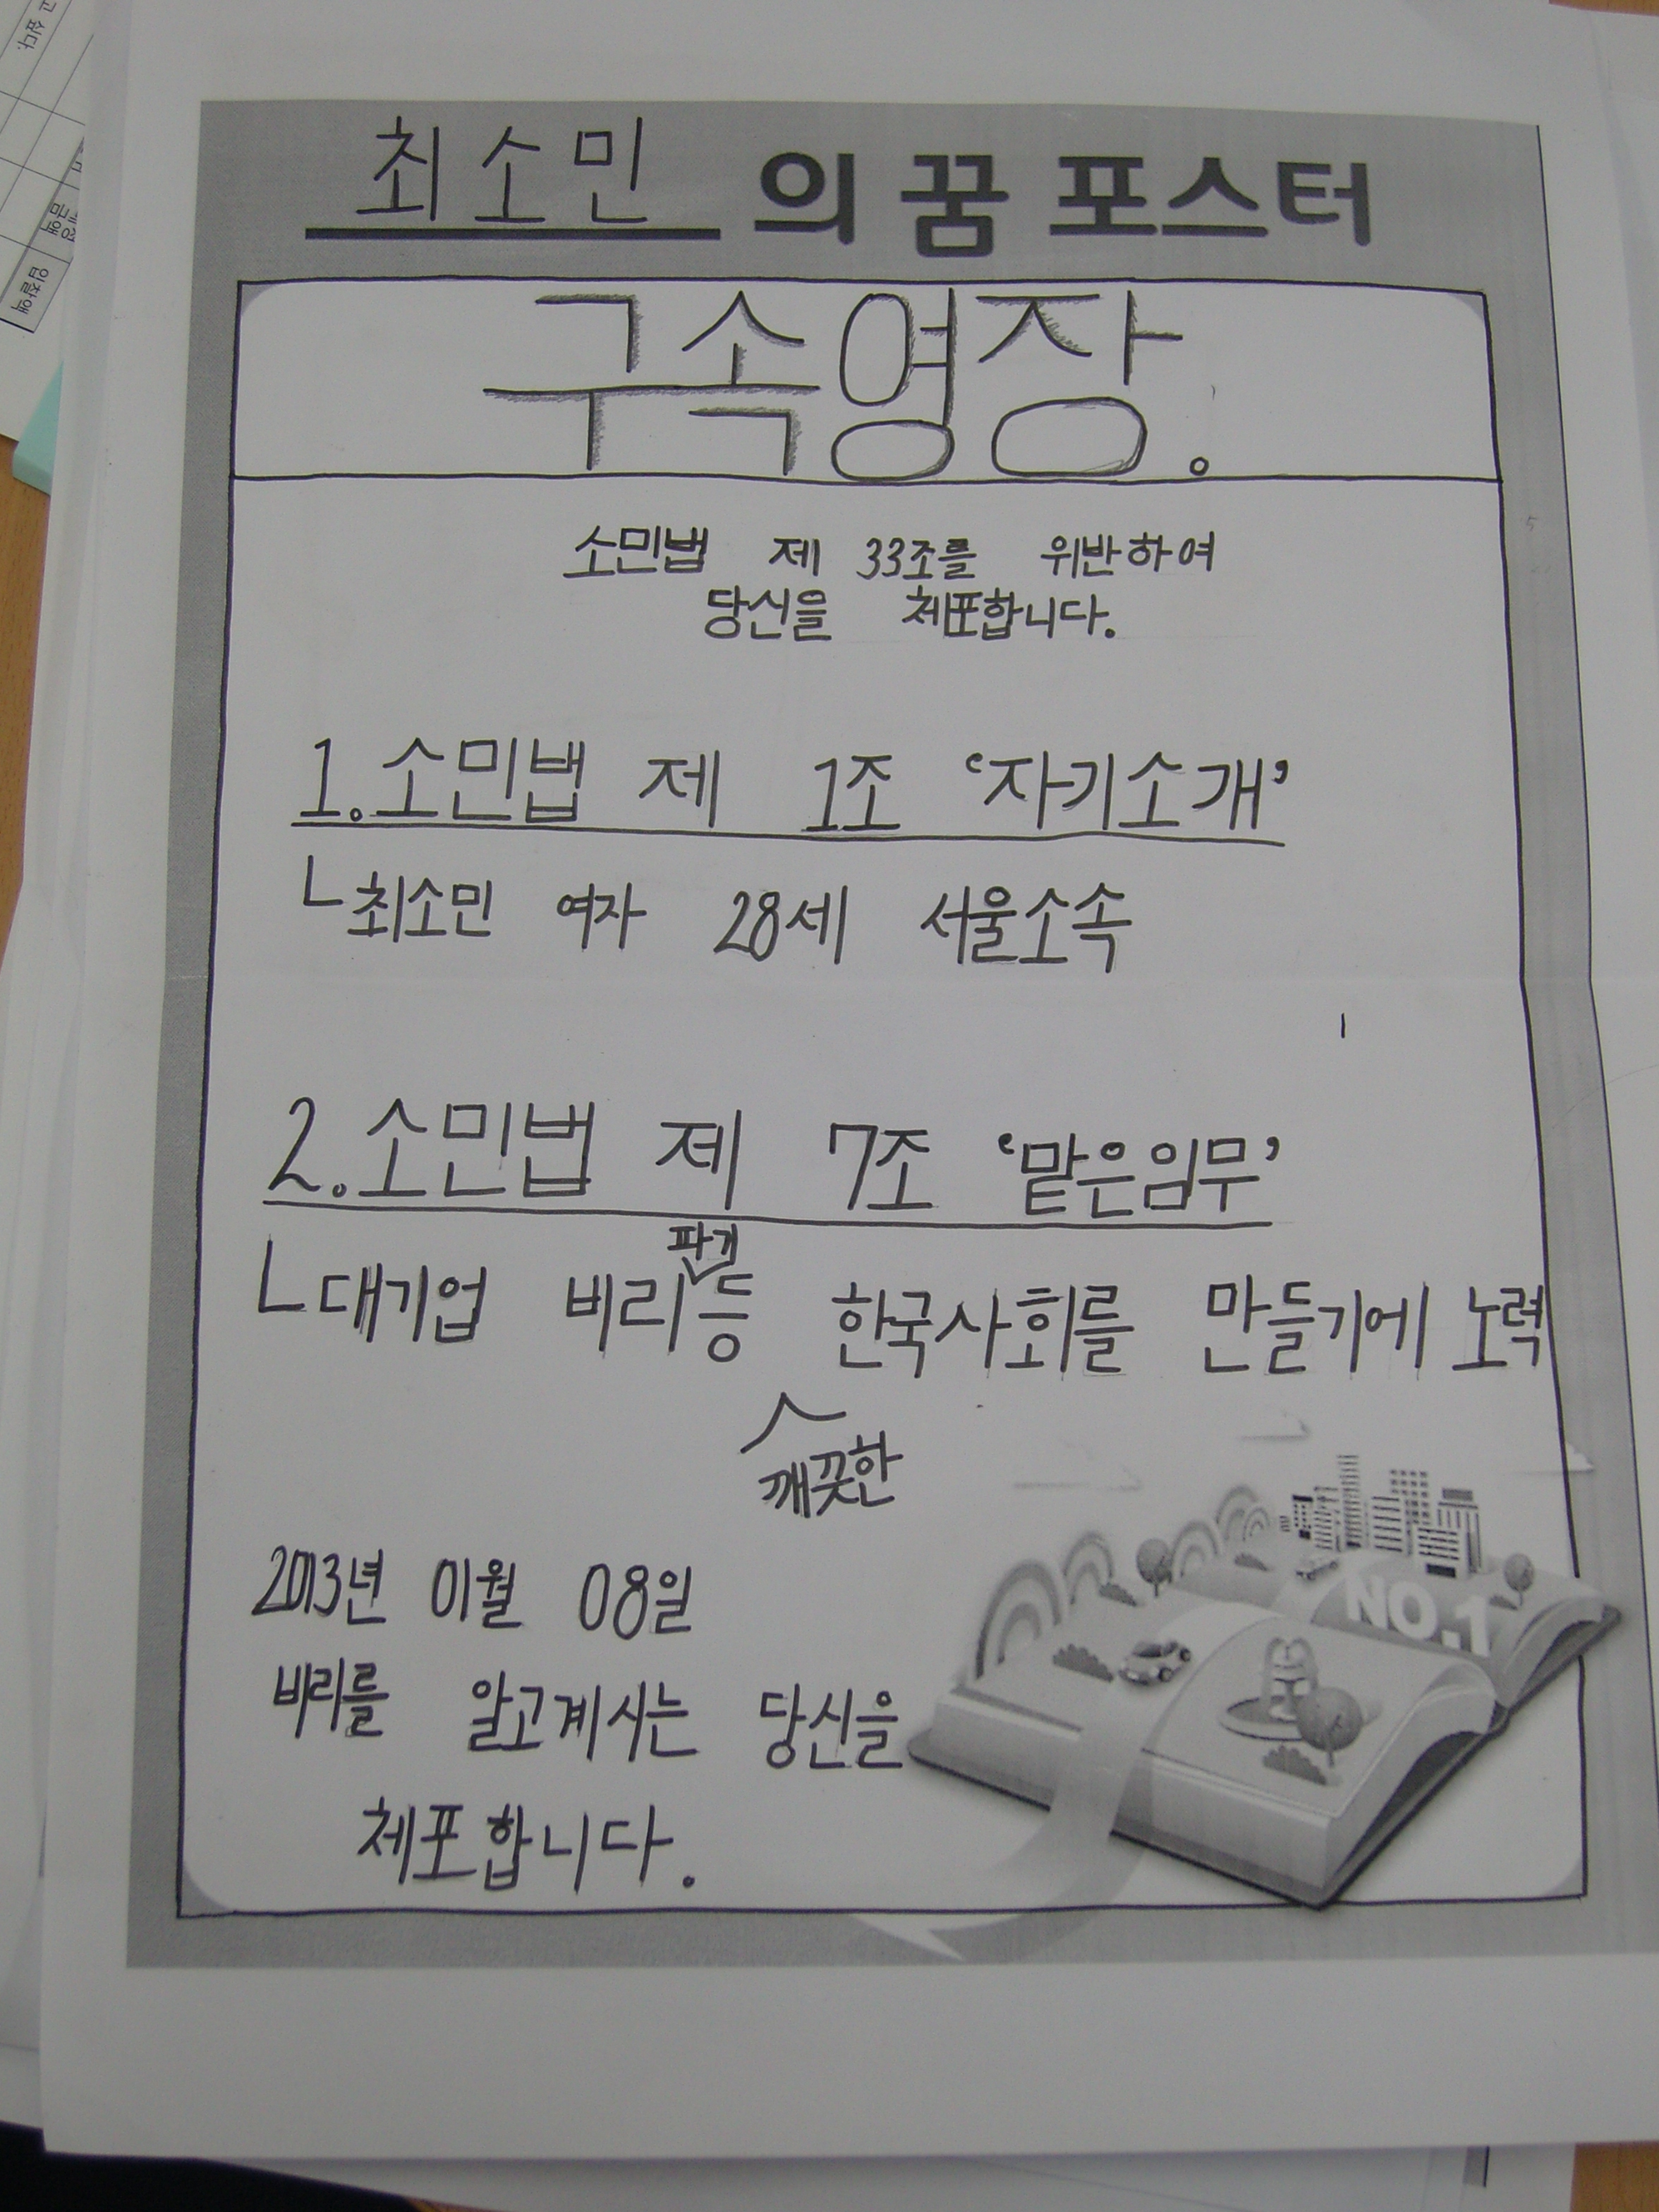 최소민 의 꿈 포스터
구속영장.
소민법 제 33조를 위반하여
당신을 체포합니다.
1. 소민법 제 1조 ‘자기소개’
ㄴ최소민 여자 28세 서울소속
2. 소민법 제 7조 ‘맡은임무’
파개
ㄴ대기업 비리등 한국사회를 만들기에 노력
깨끗한
2013년 01월 08일
비리를 알고계시는 당신을
체포합니다.
NO.1
고 싶다.
금액
입찰액